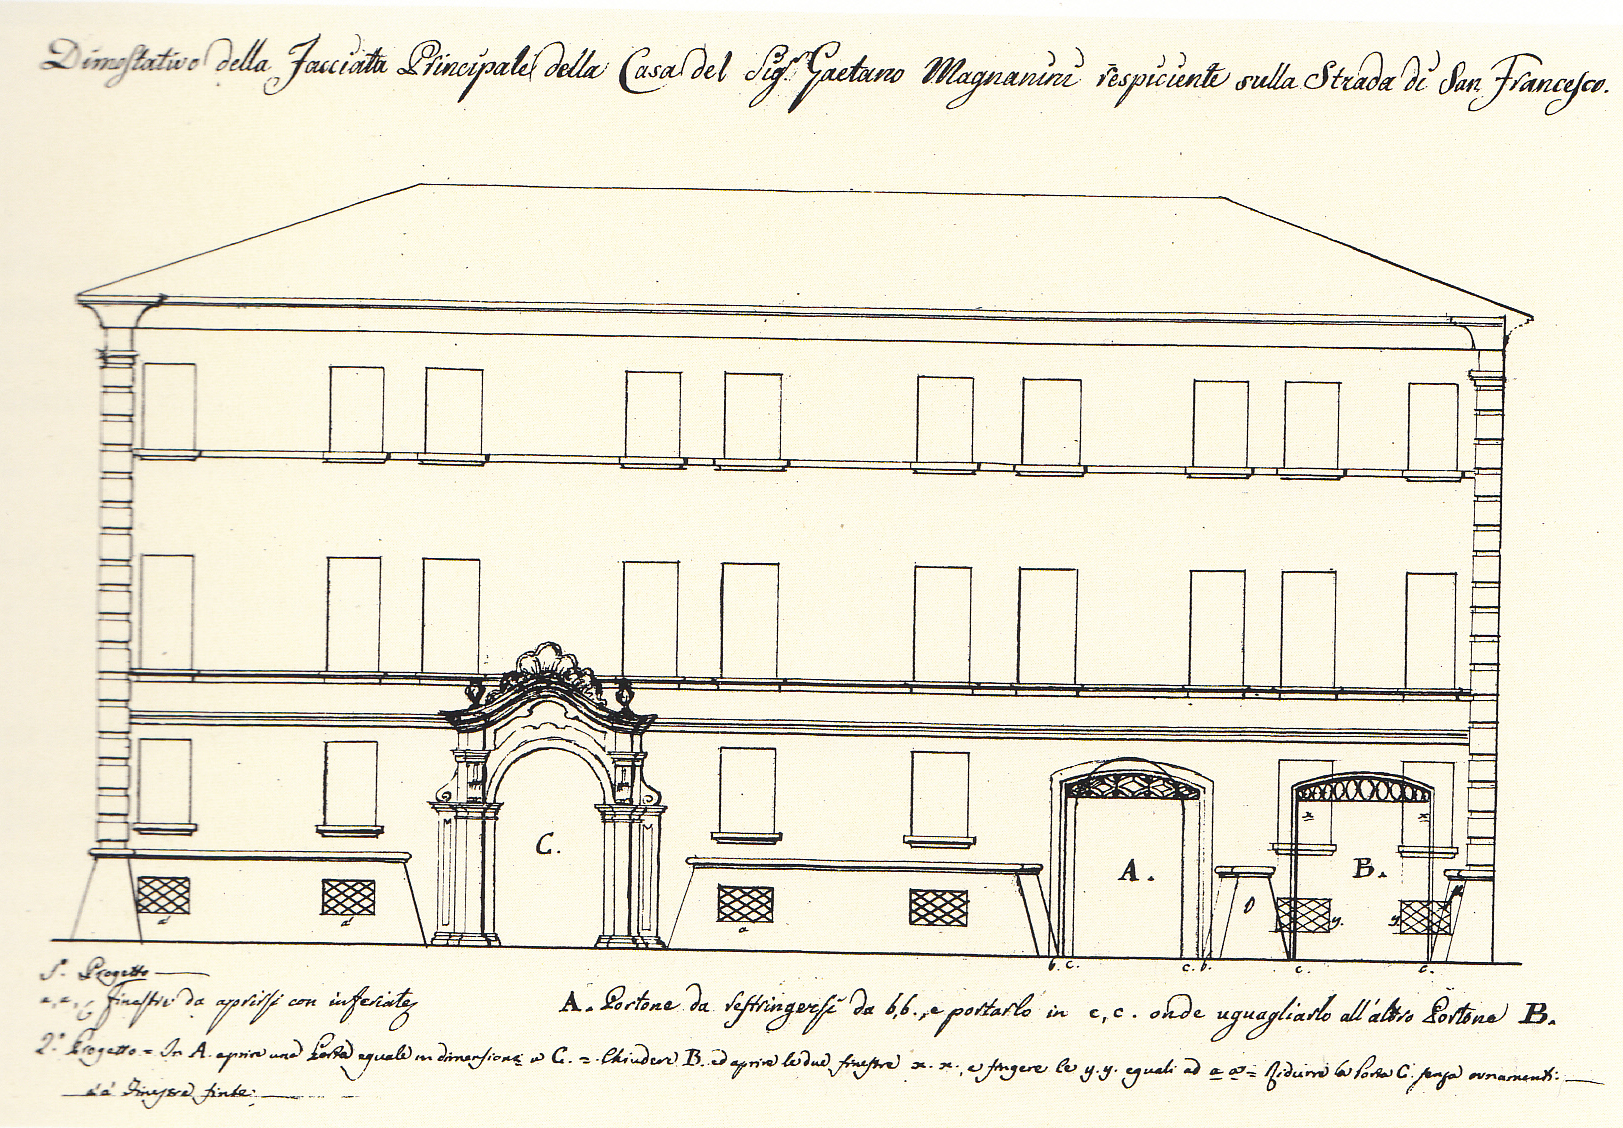 Dimostativo della Facciata Principale della Casa del Sig.r Gaetano Magnanini respiciente sulla Strada di San Francesco.
C.
A.
B.
D
x x
y. y.
a' a' a
b. c. c. b. c. c.
1.° Progetto
a, a, finestre da aprirsi con inferiate
A. Portone da restringersi da b,b., e portarlo in c, c. onde uguagliarlo all'altro Portone B.
2.° Progetto = In A. aprire una Porta eguale in dimensione a C. = Chiudere B. ed aprire le due finestre x. x., e fingere le y. y. eguali ad a a = Ridurre la Porta C. senza ornamenti.
a' a' Finestre finte.